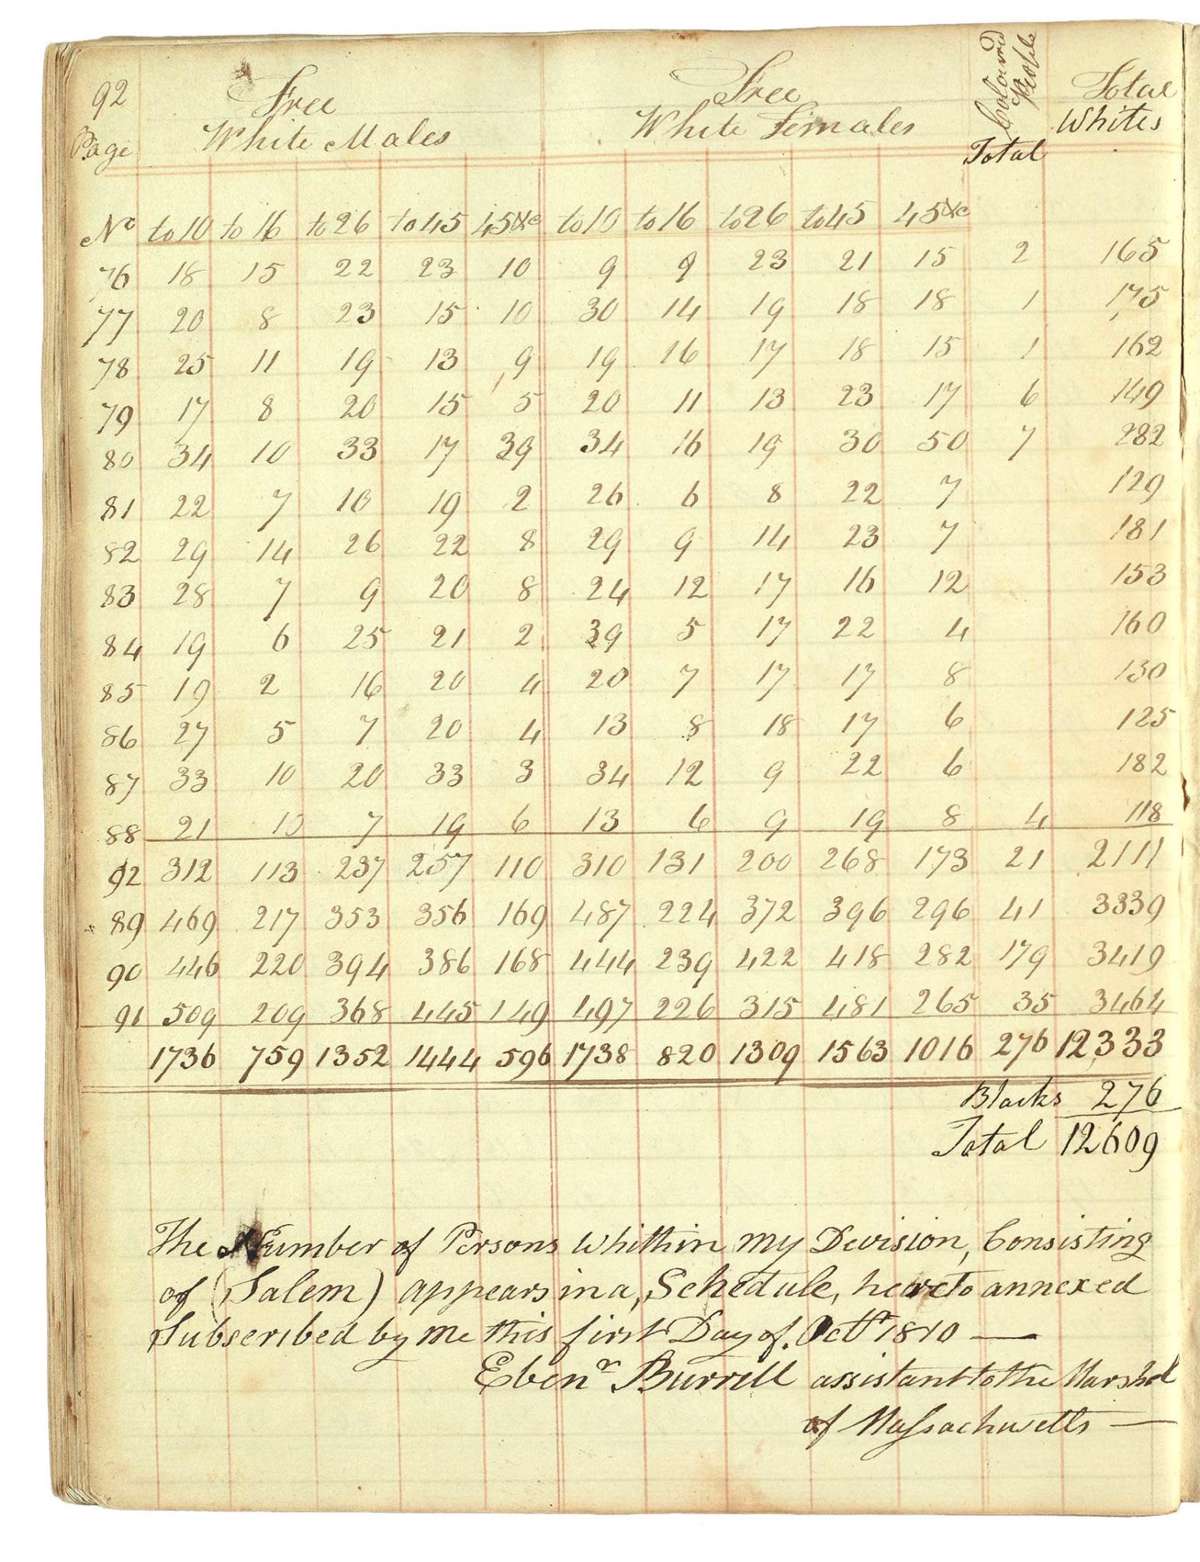 92 Free Free Coloured People Total
Page White Males White Females Total Whites
No to 10 to 16 to 26 to 45 45 &c to 10 to 16 to 26 to 45 45 &c
76 18 15 22 23 10 9 9 23 21 15 2 165
77 20 8 23 15 10 30 14 19 18 18 1 175
78 25 11 19 13 9 19 16 17 18 15 1 162
79 17 8 20 15 5 20 11 13 23 17 6 149
80 34 10 33 17 39 34 16 19 30 50 7 282
81 22 7 10 19 2 26 6 8 22 7 129
82 29 14 26 22 8 29 9 14 23 7 181
83 28 7 9 20 8 24 12 17 16 12 153
84 19 6 25 21 2 39 5 17 22 4 160
85 19 2 16 20 4 20 7 17 17 8 130
86 27 5 7 20 4 13 8 18 17 6 125
87 33 10 20 33 3 34 12 9 22 6 182
88 21 10 7 19 6 13 6 9 19 8 4 118
92 312 113 237 257 110 310 131 200 268 173 21 2111
89 469 217 353 356 169 487 224 372 396 296 41 3339
90 446 220 394 386 168 444 239 422 418 282 179 3419
91 509 209 368 445 149 497 226 315 481 265 35 3464
1736 759 1352 1444 596 1738 820 1309 1563 1016 276 12,333
Blacks 276
Total 12609
The Number of Persons whithin my Devision, Consisting
of (Salem) appears in a, Schedule, hereto annexed
Subscribed by me this first Day of. Octr 1810 —
Ebenr Burrill assistant to the Marshal
of Massachusetts —